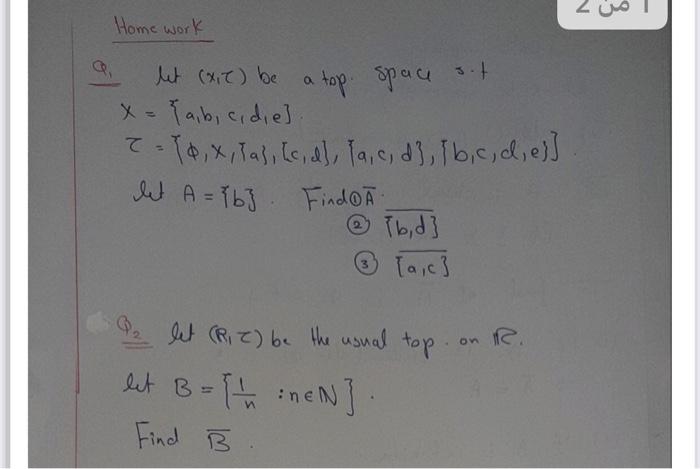 1 من 2
Home work
Q1 let (x,τ) be a top. space s.t
X = {a,b, c,d,e}.
τ = {φ, X, {a}, {c,d}, {a,c,d}, {b,c,d,e}}
let A = {b}. Find ① A̅.
② \overline{{b,d}}
③ \overline{{a,c}}
Q2 let (R,τ) be the usual top. on ℝ.
let B = {1/n : n∈N}.
Find B̅.